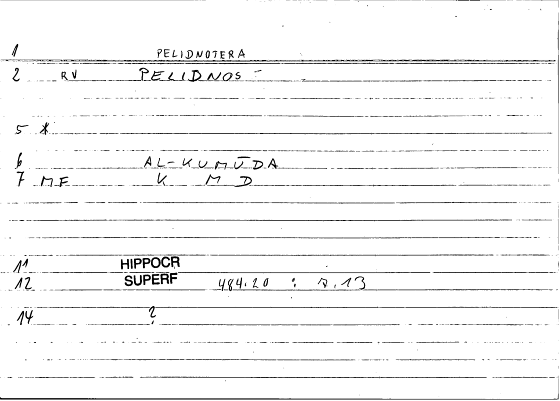 1 PELIDNOTERA
2 RV PELIDNOS -
5 *
6 AL-KUMŪDA
7 MF K M D
11 HIPPOCR
12 SUPERF 484.20 : 7.13
14 ?